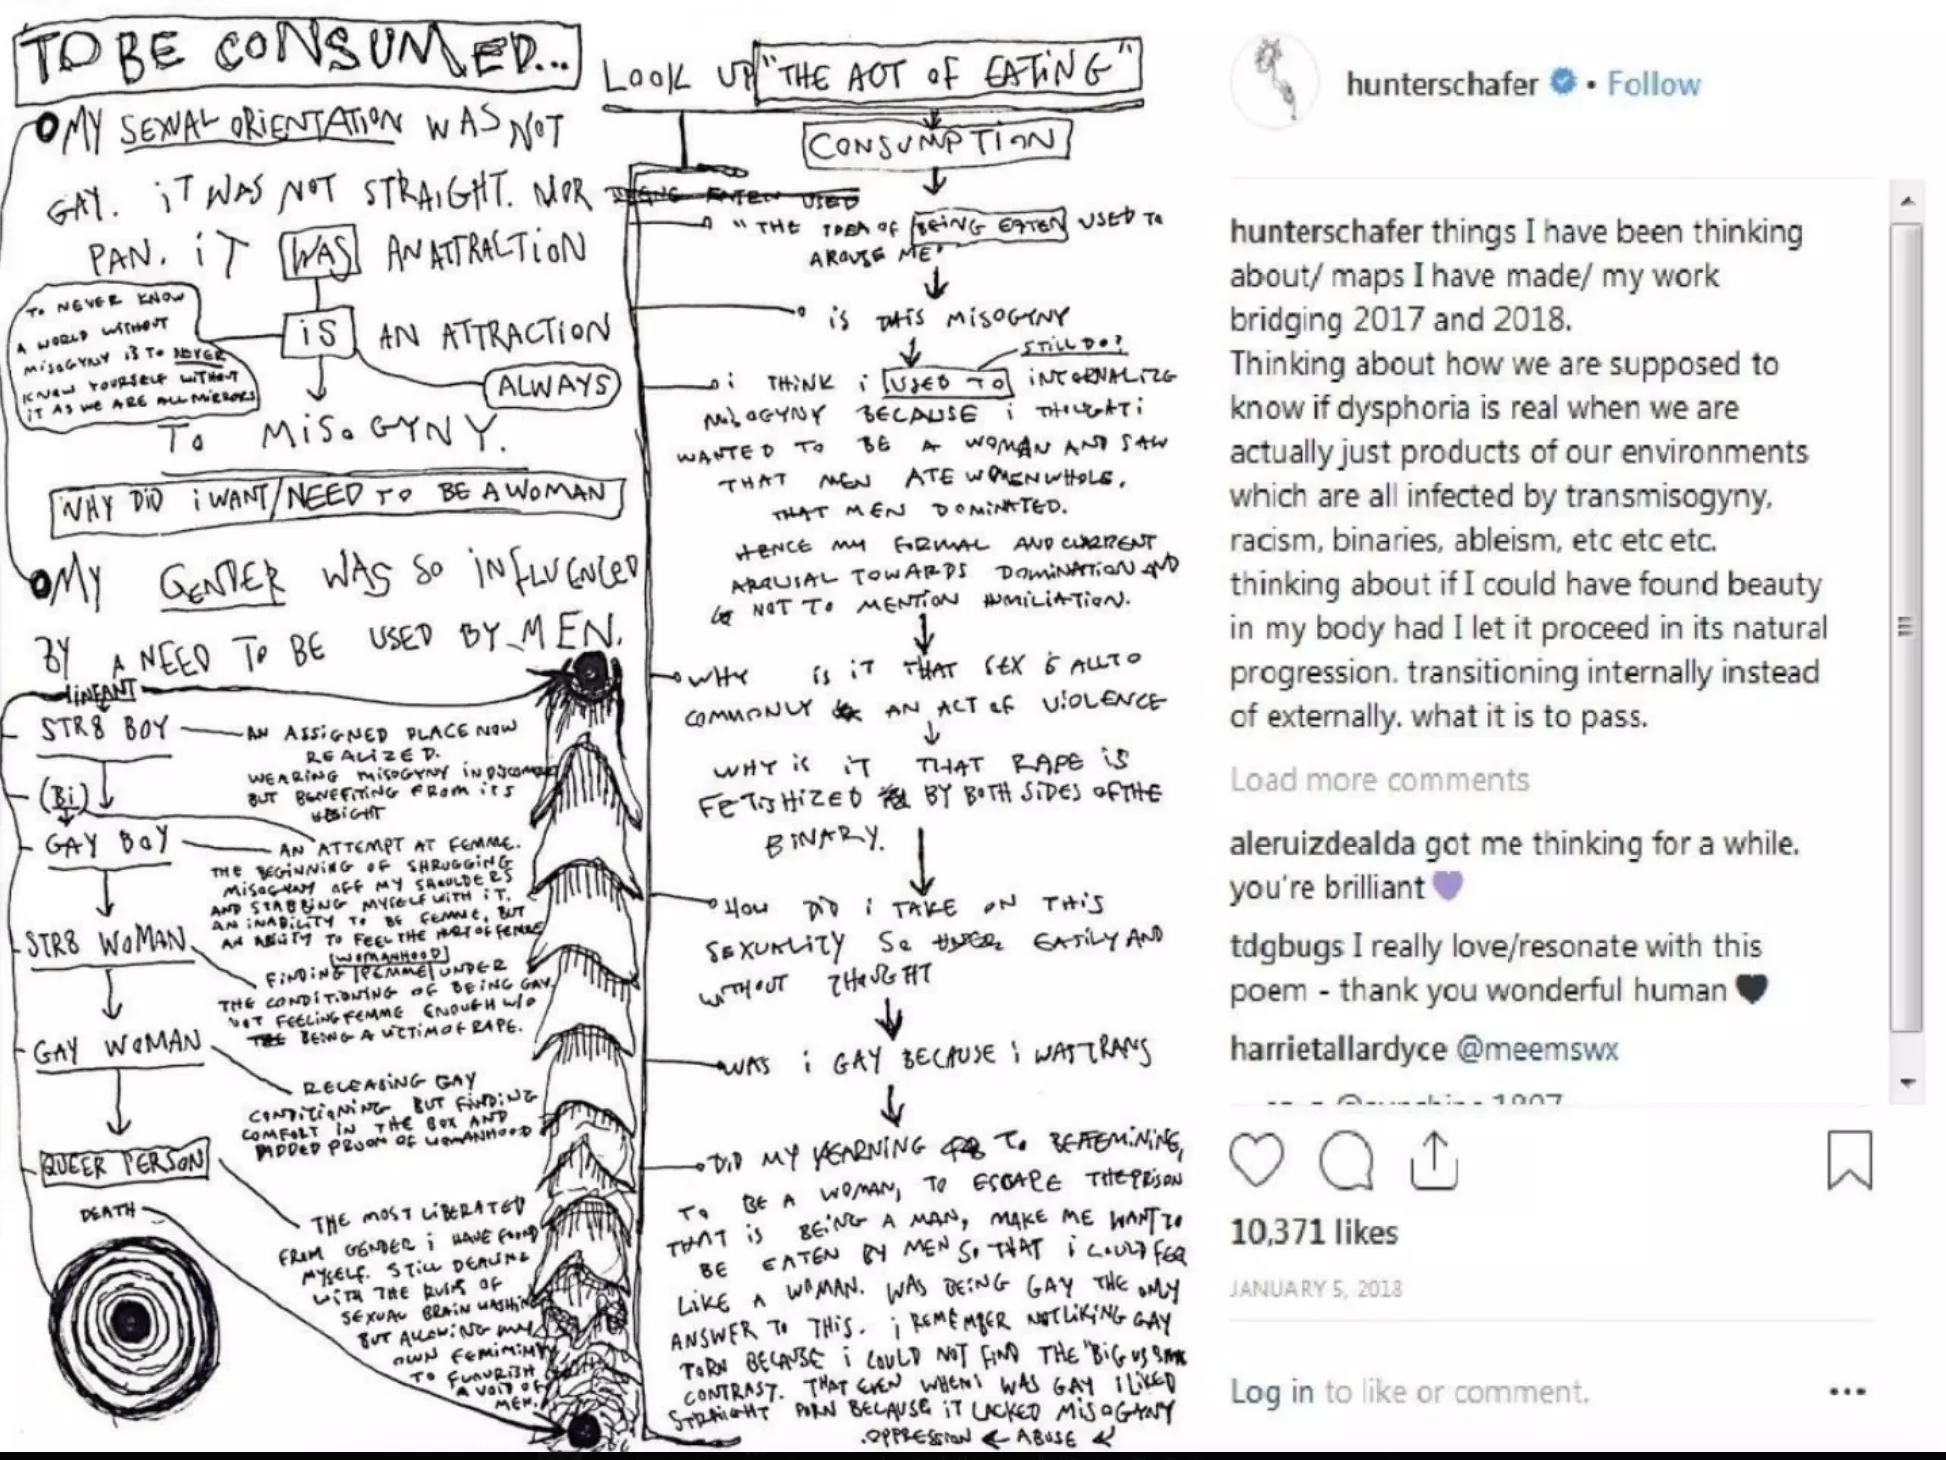 TO BE CONSUMED...
MY SEXUAL ORIENTATION WAS NOT
GAY. iT WAS NOT STRAIGHT. NOR
PAN. iT WAS AN ATTRACTION
iS AN ATTRACTION
ALWAYS
TO MiSOGYNY.
TO NEVER KNOW
A WORLD WITHOUT
MiSOGYNY iS TO NEVER
KNOW YOURSELF WiTHOUT
iT AS WE ARE ALL MiRRORS
WHY DiD i WANT/NEED TO BE A WOMAN
MY GENDER WAS SO iNFLUENCED
BY A NEED TO BE USED BY MEN.
iNFANT
STR8 BOY
AN ASSiGNED PLACE NOW
REALiZED.
WEARiNG MiSOGYNY iN
BUT BENEFiTiNG FROM iTS
WEiGHT
(Bi)
GAY BOY
AN ATTEMPT AT FEMME.
THE BEGiNNiNG OF SHRUGGiNG
MiSOGYNY OFF MY SHOULDERS
AND STABBiNG MYSELF WiTH iT.
AN iNABiLiTY TO BE FEMME, BUT
AN ABiLiTY TO FEEL THE HURT OF FEMME
STR8 WOMAN
[WOMANHOOD]
FiNDiNG [FEMME] UNDER
THE CONDiTiONiNG OF BEiNG GAY.
NOT FEELiNG FEMME ENOUGH W/O
BEiNG A ViCTiM OF RAPE.
GAY WOMAN
RELEASiNG GAY
CONDiTiONiNG BUT FiNDiNG
COMFORT iN THE BOX AND
PADDED PRiSON OF WOMANHOOD
QUEER PERSON
THE MOST LiBERATED
FROM GENDER i HAVE FOUND
MYSELF. STiLL DEALiNG
WiTH THE RUiNS OF
SEXUAL BRAiN WASHiNG
BUT ALLOWiNG MY
OWN FEMiNiNiTY
TO FLOURiSH
A VOiD OF
MEN.
DEATH
LOOK UP "THE ACT OF EATiNG"
CONSUMPTiON
BEiNG EATEN USED
"THE iDEA OF BEiNG EATEN USED TO
AROUSE ME"
iS THiS MiSOGYNY
STiLL DO?
i THiNK i USED TO iNTERNALiZE
MiSOGYNY BECAUSE i THOUGHT i
WANTED TO BE A WOMAN AND SAW
THAT MEN ATE WOMEN WHOLE.
THAT MEN DOMiNATED.
HENCE MY FORMAL AND CURRENT
AROUSAL TOWARDS DOMiNATiON AND
NOT TO MENTiON HUMiLiATiON.
WHY iS iT THAT SEX iS ALL TO
COMMONLY AN ACT OF ViOLENCE
WHY iS iT THAT RAPE iS
FETiSHiZED BY BOTH SiDES OF THE
BiNARY.
HOW DiD i TAKE ON THiS
SEXUALiTY SO EASiLY AND
WiTHOUT THOUGHT
WAS i GAY BECAUSE i WAS TRANS
DiD MY YEARNiNG TO BE FEMiNiNE,
TO BE A WOMAN, TO ESCAPE THE PRiSON
THAT iS BEiNG A MAN, MAKE ME WANT TO
BE EATEN BY MEN SO THAT i COULD FEEL
LiKE A WOMAN. WAS BEiNG GAY THE ONLY
ANSWER TO THiS. i REMEMBER NOT LiKiNG GAY
PORN BECAUSE i COULD NOT FiND THE "BiG VS SMALL
CONTRAST. THAT EVEN WHEN i WAS GAY i LiKED
STRAiGHT PORN BECAUSE iT LACKED MiSOGYNY
OPPRESSiON ← ABUSE
hunterschafer • Follow
hunterschafer things I have been thinking
about/ maps I have made/ my work
bridging 2017 and 2018.
Thinking about how we are supposed to
know if dysphoria is real when we are
actually just products of our environments
which are all infected by transmisogyny,
racism, binaries, ableism, etc etc etc.
thinking about if I could have found beauty
in my body had I let it proceed in its natural
progression. transitioning internally instead
of externally. what it is to pass.
Load more comments
aleruizdealda got me thinking for a while.
you're brilliant 💜
tdgbugs I really love/resonate with this
poem - thank you wonderful human 🖤
harrietallardyce @meemswx
10,371 likes
JANUARY 5, 2018
Log in to like or comment.